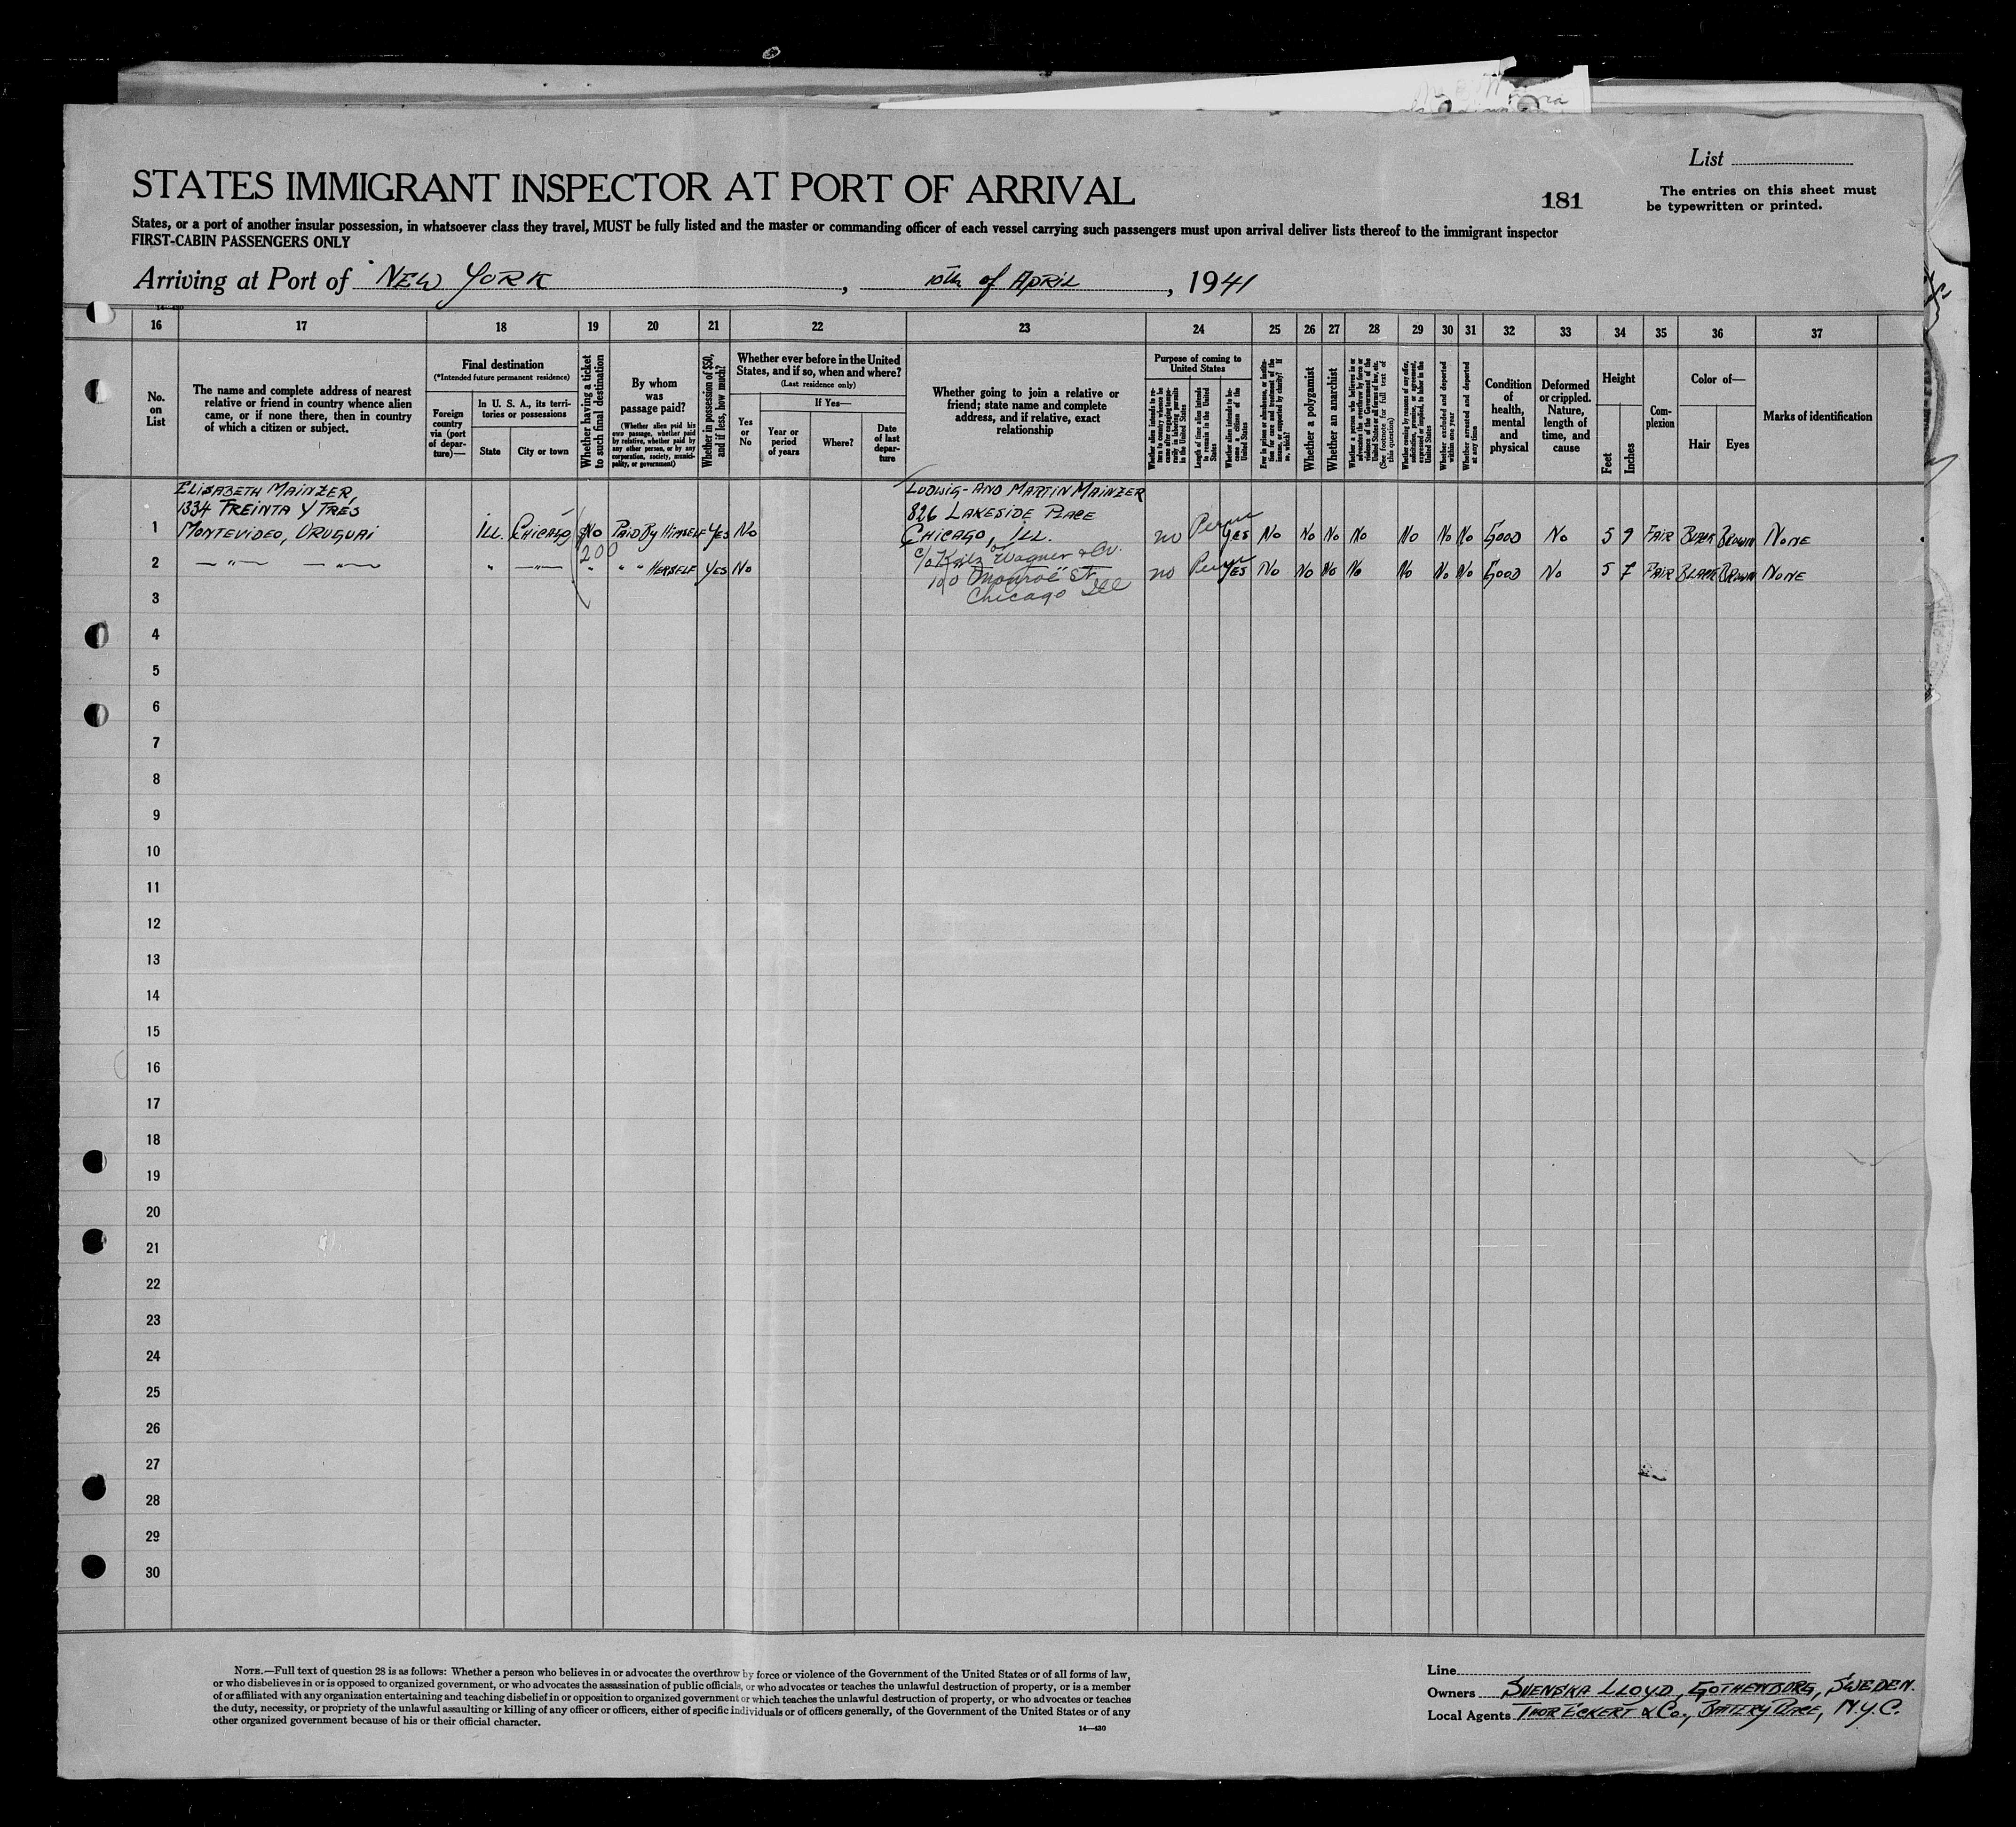 List
STATES IMMIGRANT INSPECTOR AT PORT OF ARRIVAL
181
The entries on this sheet must
be typewritten or printed.
States, or a port of another insular possession, in whatsoever class they travel, MUST be fully listed and the master or commanding officer of each vessel carrying such passengers must upon arrival deliver lists thereof to the immigrant inspector
FIRST-CABIN PASSENGERS ONLY
Arriving at Port of NEW YORK, 10th of APRIL, 1941
14—430
16 17 18 19 20 21 22 23 24 25 26 27 28 29 30 31 32 33 34 35 36 37
No. on List
The name and complete address of nearest
relative or friend in country whence alien
came, or if none there, then in country
of which a citizen or subject.
Final destination
(*Intended future permanent residence)
Foreign country via (port of departure)—
In U. S. A., its territories or possessions
State
City or town
Whether having a ticket to such final destination
By whom was passage paid?
(Whether alien paid his own passage, whether paid by relative, whether paid by any other person, or by any corporation, society, municipality, or government)
Whether in possession of $50, and if less, how much?
Whether ever before in the United States, and if so, when and where?
(Last residence only)
Yes or No
If Yes—
Year or period of years
Where?
Date of last departure
Whether going to join a relative or
friend; state name and complete
address, and if relative, exact
relationship
Purpose of coming to United States
Whether alien intends to return to country whence he came after engaging temporarily in laboring pursuits in the United States
Length of time alien intends to remain in the United States
Whether alien intends to become a citizen of the United States
Ever in prison or almshouse, or institution for care and treatment of the insane, or supported by charity? If so, which?
Whether a polygamist
Whether an anarchist
Whether a person who believes in or advocates the overthrow by force or violence of the Government of the United States or all forms of law, etc. (See footnote for full text of this question)
Whether coming by reason of any offer, solicitation, promise, or agreement, expressed or implied, to labor in the United States
Whether excluded and deported within one year
Whether arrested and deported at any time
Condition of health, mental and physical
Deformed or crippled. Nature, length of time, and cause
Height
Feet
Inches
Complexion
Color of—
Hair
Eyes
Marks of identification
ELISABETH MAINZER,
1334 TREINTA Y TRES
1 MONTEVIDEO, URUGUAI ILL. CHICAGO NO PAID BY HIMSELF YES NO
LUDWIG-AND MARTIN MAINZER
826 LAKESIDE PLACE
CHICAGO, ILL.
no Perm YES NO NO NO NO NO NO NO GOOD NO 5 9 FAIR BLACK BROWN NONE
200
2 — " — — " — " — " — " " " HERSELF YES NO
c/o Wagner & Co.
Monroe St
Chicago Ill
no Perm YES NO NO NO NO NO NO NO GOOD NO 5 7 FAIR BLACK BROWN NONE
3
4
5
6
7
8
9
10
11
12
13
14
15
16
17
18
19
20
21
22
23
24
25
26
27
28
29
30
NOTE.—Full text of question 28 is as follows: Whether a person who believes in or advocates the overthrow by force or violence of the Government of the United States or of all forms of law,
or who disbelieves in or is opposed to organized government, or who advocates the assassination of public officials, or who advocates or teaches the unlawful destruction of property, or is a member
of or affiliated with any organization entertaining and teaching disbelief in or opposition to organized government or which teaches the unlawful destruction of property, or who advocates or teaches
the duty, necessity, or propriety of the unlawful assaulting or killing of any officer or officers, either of specific individuals or of officers generally, of the Government of the United States or of any
other organized government because of his or their official character.
14—430
Line
Owners SVENSKA LLOYD, GOTHENBORG, SWEDEN.
Local Agents THOR ECKERT & Co., BATTERY PLACE, N.Y.C.